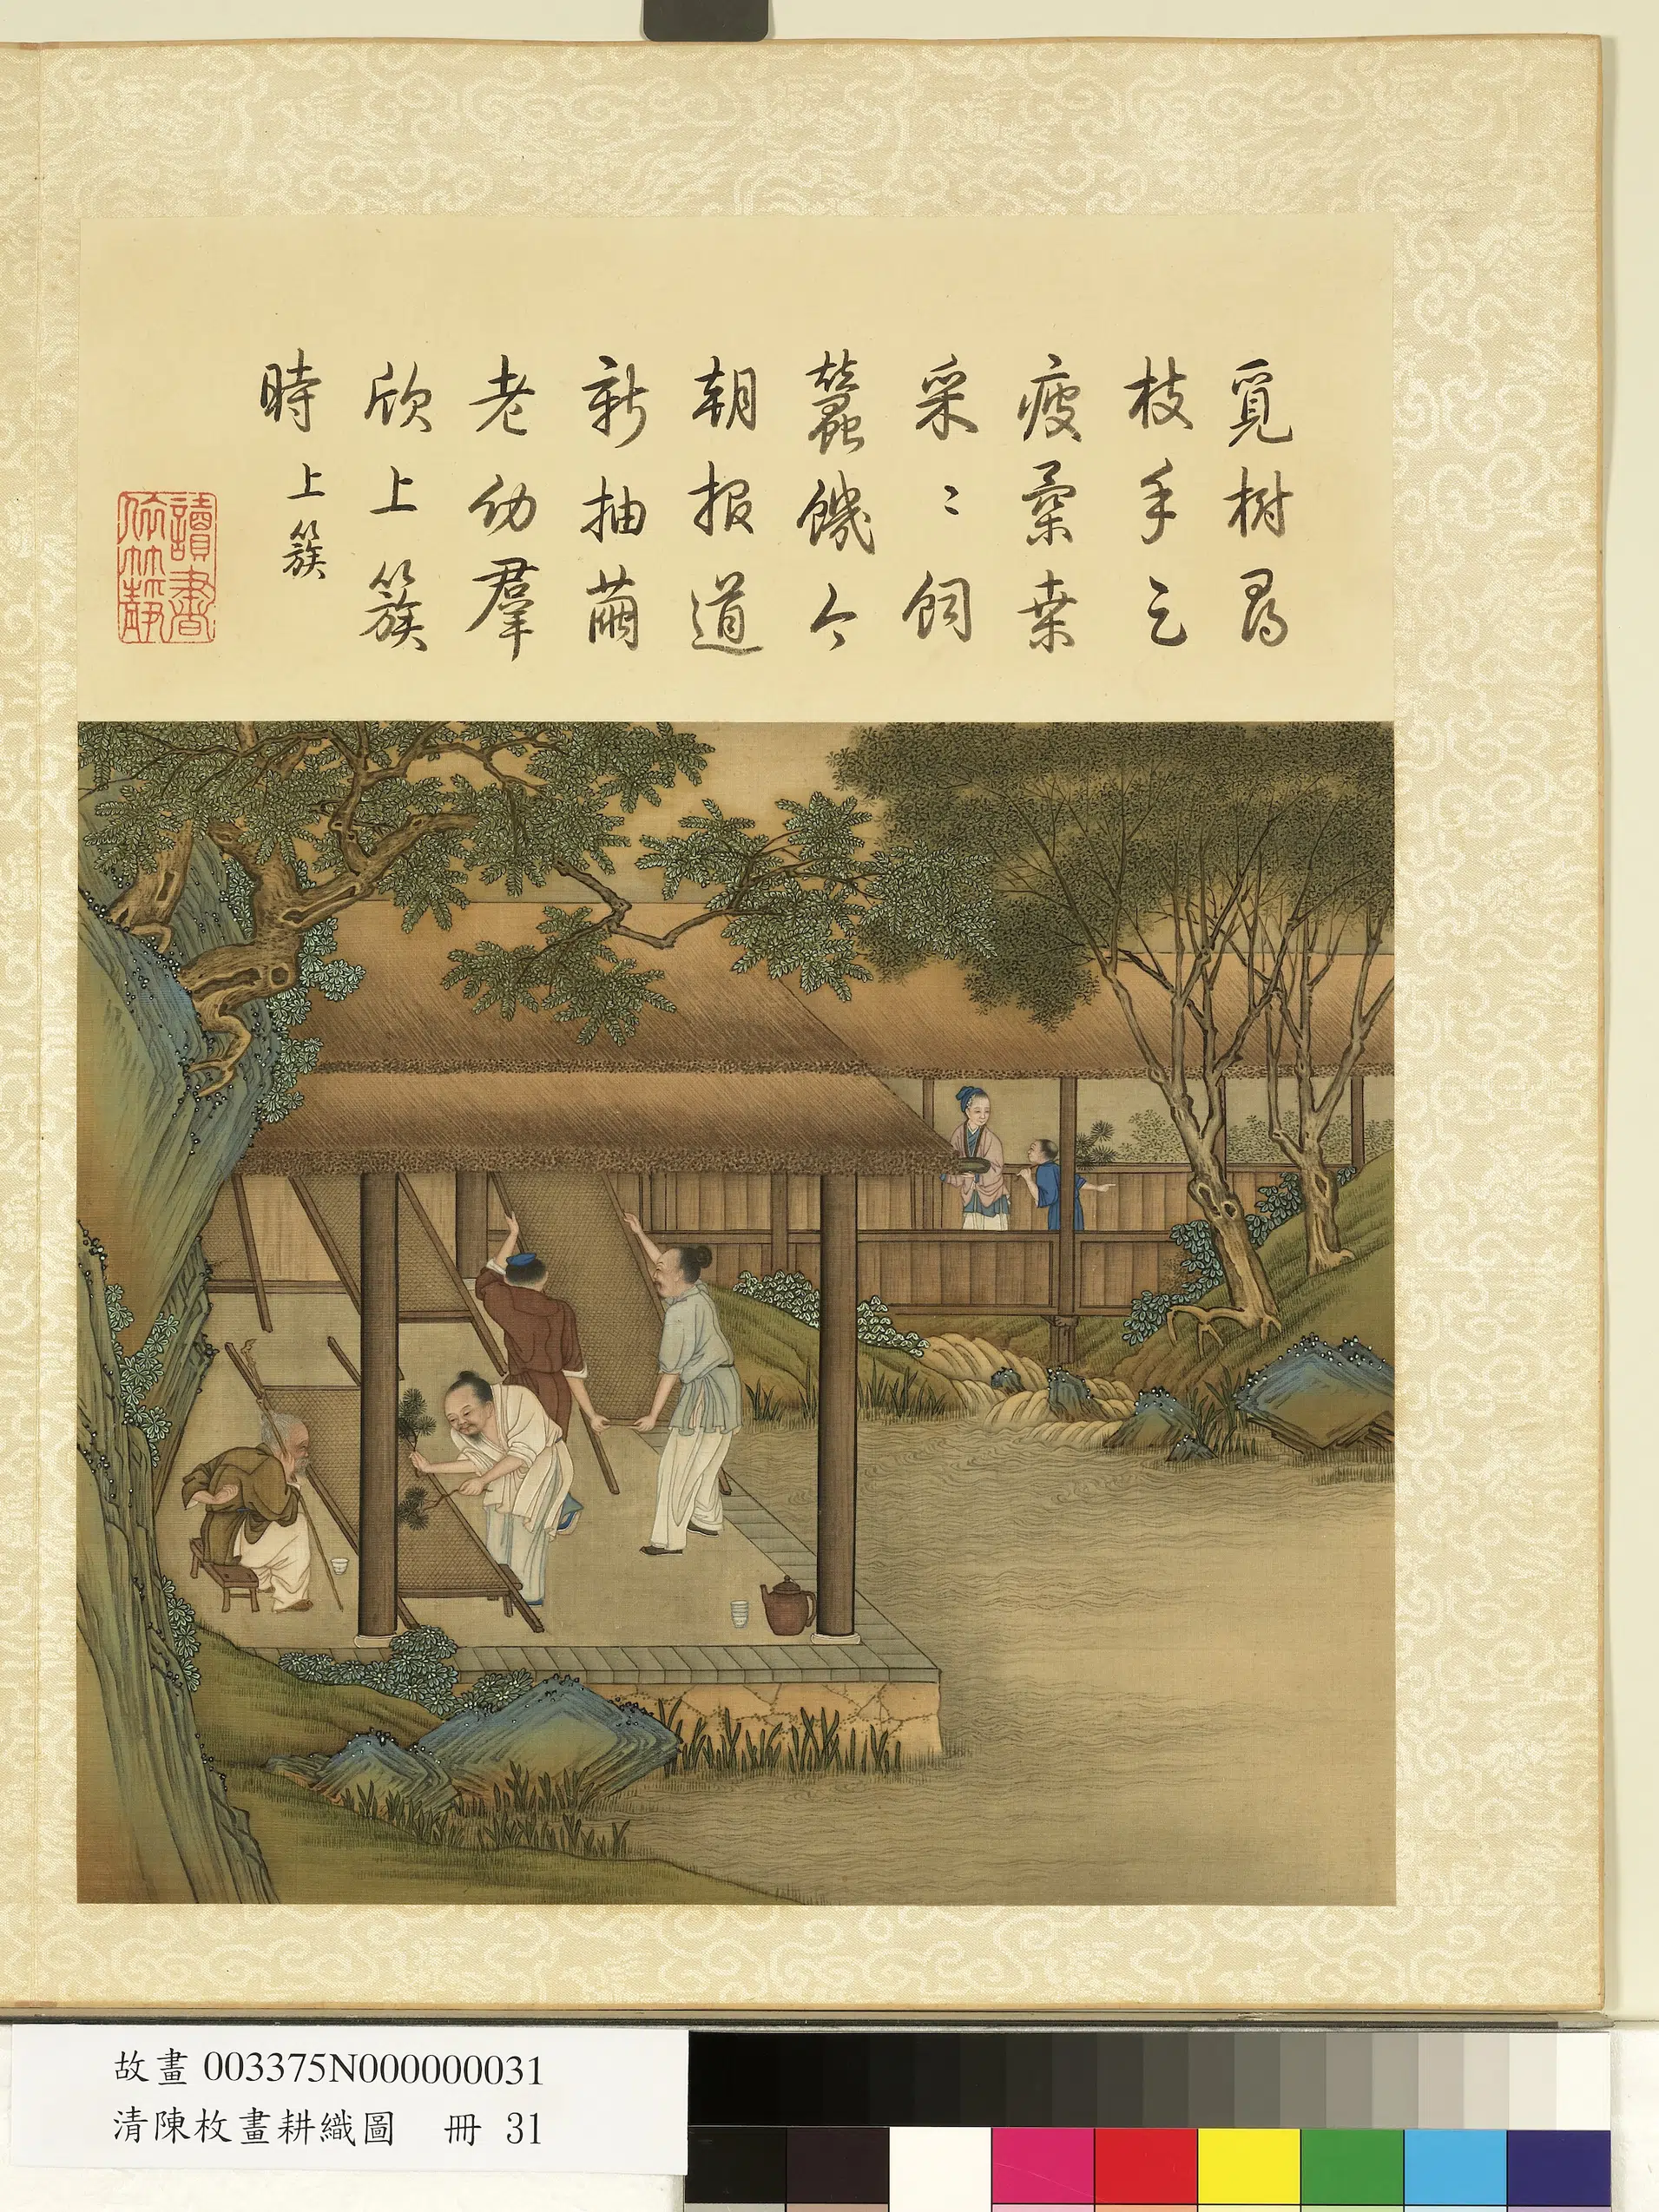 覓樹尋
枝手已
疲柔桒
采〻飼
蠶饑今
朝报道
新抽繭
老幼羣
欣上簇
時
上簇
讀書
故畫003375N000000031
清陳枚畫耕織圖 冊 31